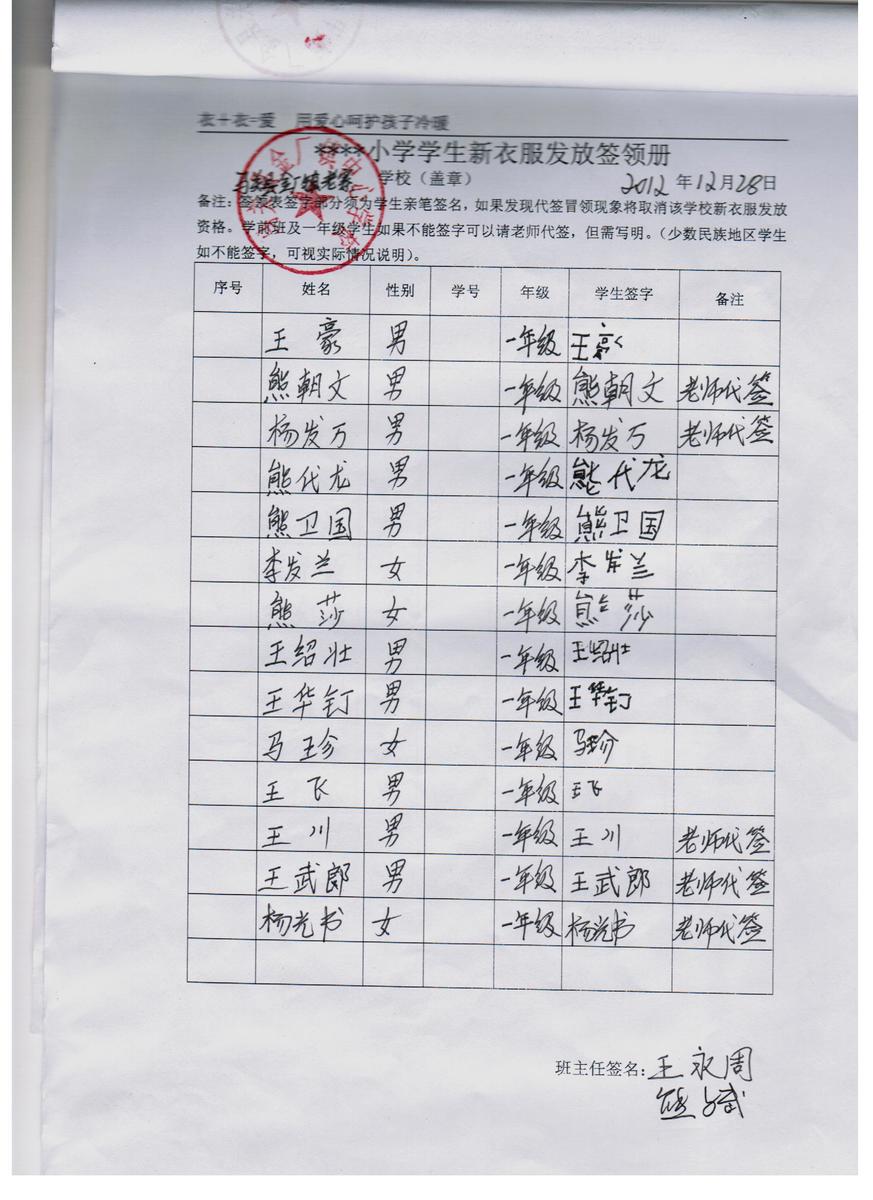 衣+衣=爱 用爱心呵护孩子冷暖
****小学学生新衣服发放签领册
学校（盖章） 2012年12月28日
备注：签领表签字部分须为学生亲笔签名，如果发现代签冒领现象将取消该学校新衣服发放
资格。学前班及一年级学生如果不能签字可以请老师代签，但需写明。（少数民族地区学生
如不能签字，可视实际情况说明）。
序号 姓名 性别 学号 年级 学生签字 备注
王豪 男 一年级 王豪
熊朝文 男 一年级 熊朝文 老师代签
杨发万 男 一年级 杨发万 老师代签
熊代龙 男 一年级 熊代龙
熊卫国 男 一年级 熊卫国
李发兰 女 一年级 李发兰
熊莎 女 一年级 熊莎
王绍壮 男 一年级 王绍壮
王华钉 男 一年级 王华钉
马珍 女 一年级 马珍
王飞 男 一年级 王飞
王川 男 一年级 王川 老师代签
王武郎 男 一年级 王武郎 老师代签
杨光书 女 一年级 杨光书 老师代签
班主任签名：王永周